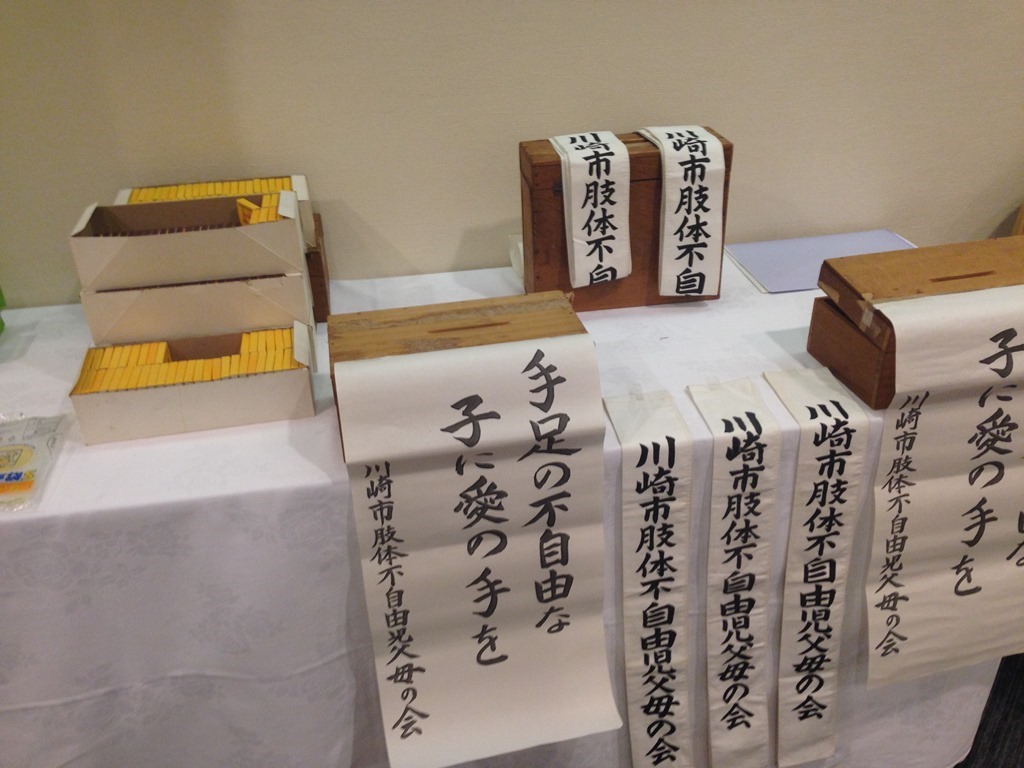 川崎市肢体不自
川崎市肢体不自
手足の不自由な
子に愛の手を
川崎市肢体不自由児父母の会
川崎市肢体不自由児父母の会
川崎市肢体不自由児父母の会
川崎市肢体不自由児父母の会
子に愛の手を
川崎市肢体不自由児父母の会